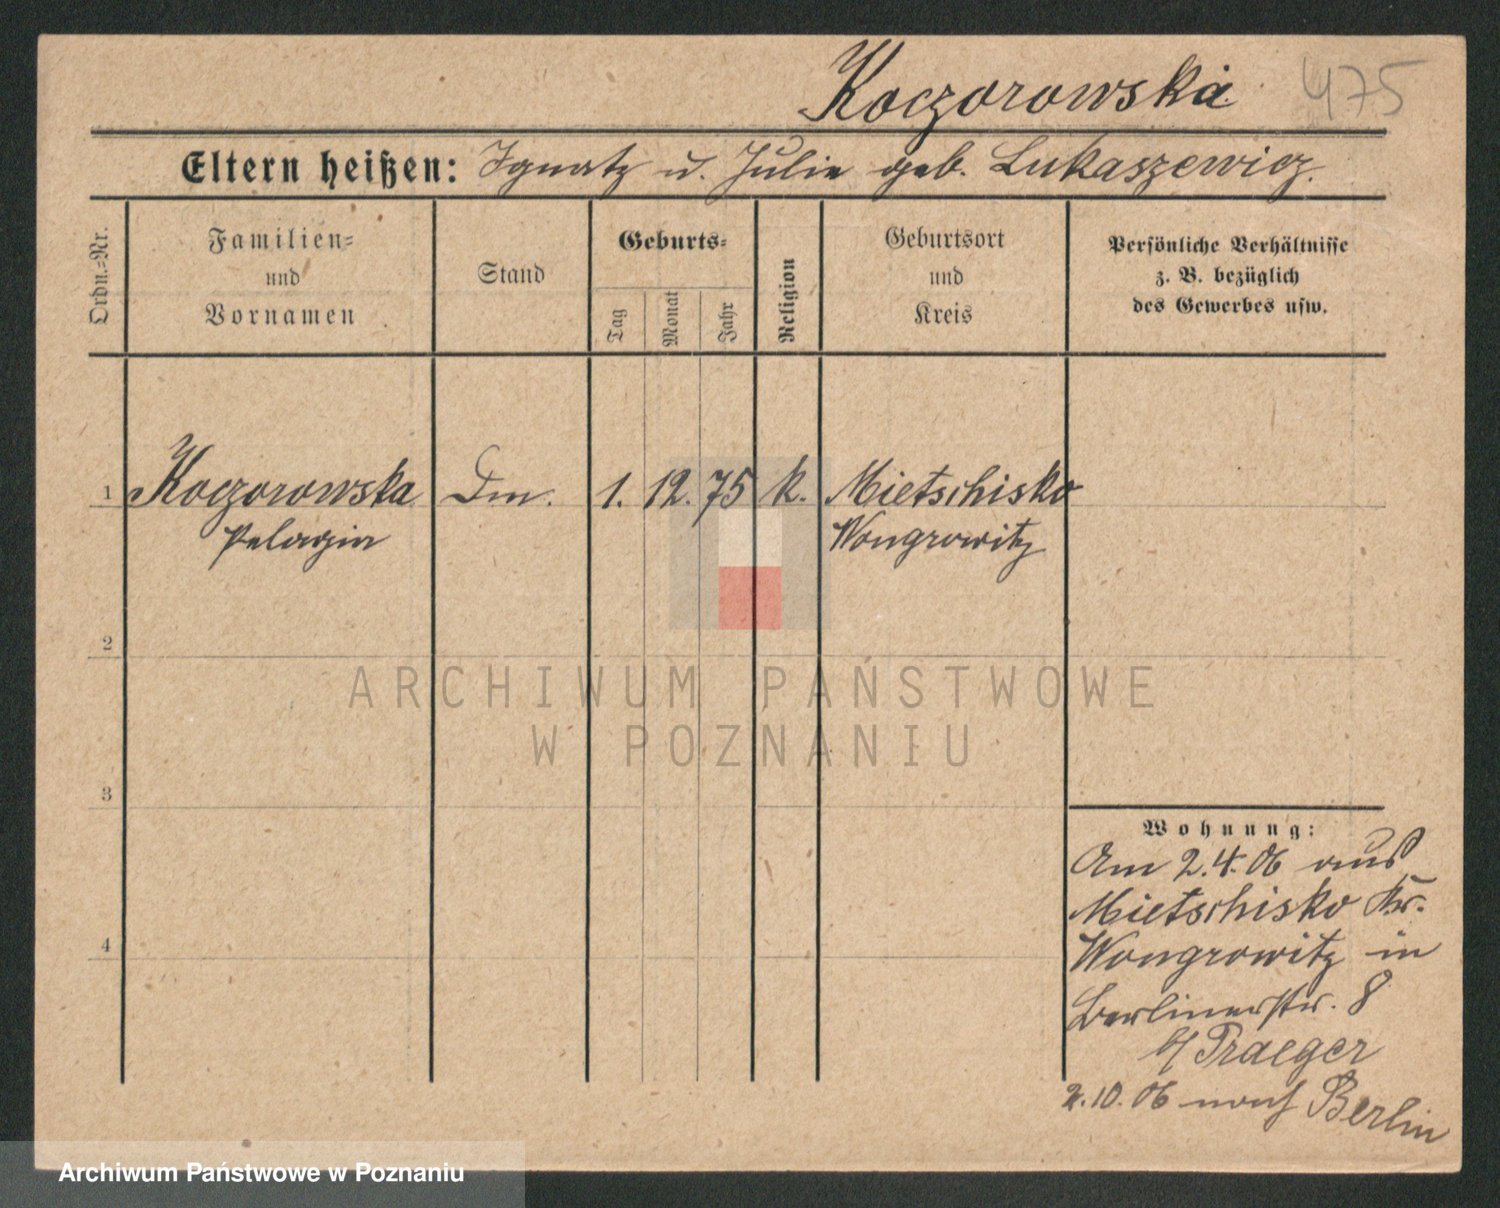 Koczorowska 475
Eltern heißen: Ignatz u. Julie geb. Lukaszewicz.
Ordn.-Nr.
Familien-
und
Vornamen
Stand
Geburts-
Tag
Monat
Jahr
Religion
Geburtsort
und
Kreis
Persönliche Verhältnisse
z. B. bezüglich
des Gewerbes usw.
1 Koczorowska Dm. 1. 12. 75 k. Mietschisko
Pelagia Wongrowitz
2
3
4
Wohnung:
Am 2.4.06 aus
Mietschisko Kr.
Wongrowitz in
Berlinerstr. 8
b/ Praeger
2.10.06 nach Berlin
ARCHIWUM PAŃSTWOWE
W POZNANIU
Archiwum Państwowe w Poznaniu